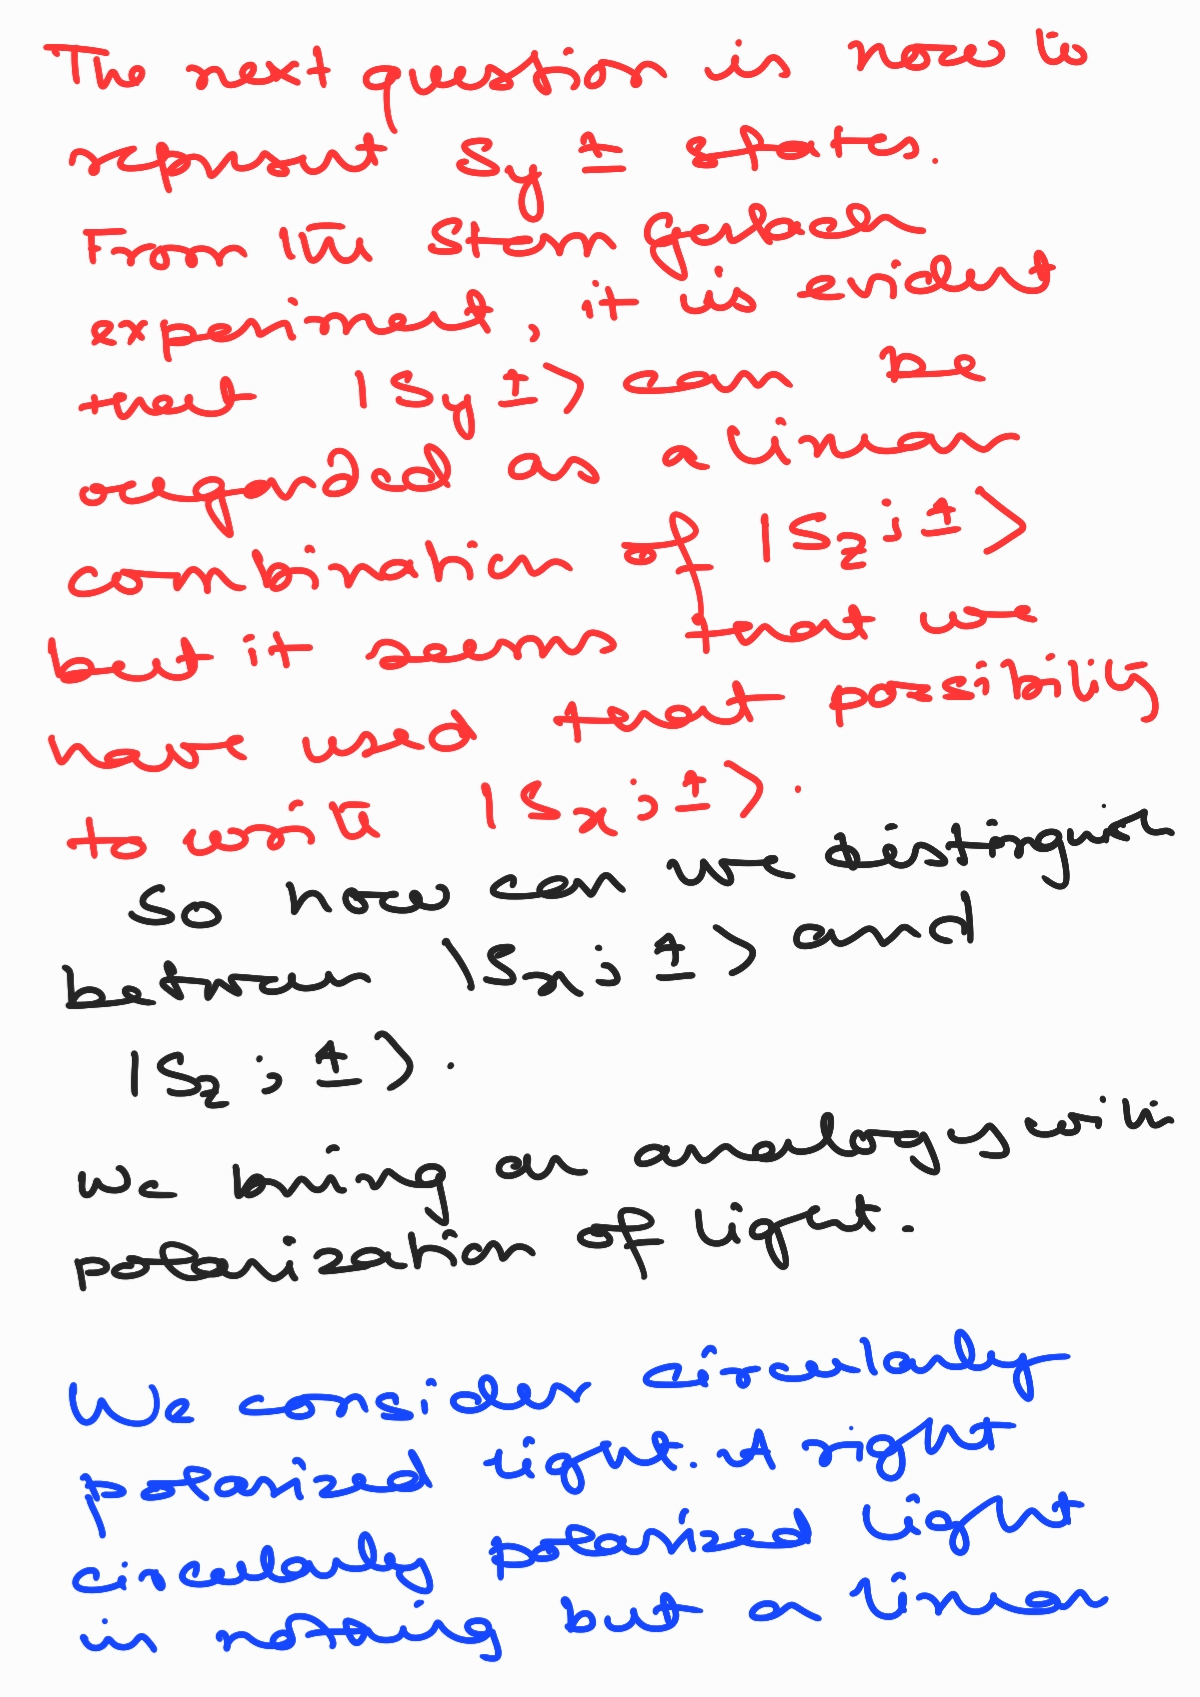 The next question is how to
represent Sy ± states.
From the Stern Gerlach
experiment, it is evident
that |Sy ±⟩ can be
regarded as a linear
combination of |Sz ; ±⟩
but it seems that we
have used that possibility
to write |Sx ; ±⟩.
So how can we distinguish
between |Sx ; ±⟩ and
|Sz ; ±⟩.
We bring an analogy with
polarization of light.
We consider circularly
polarized light. A right
circularly polarized light
is nothing but a linear